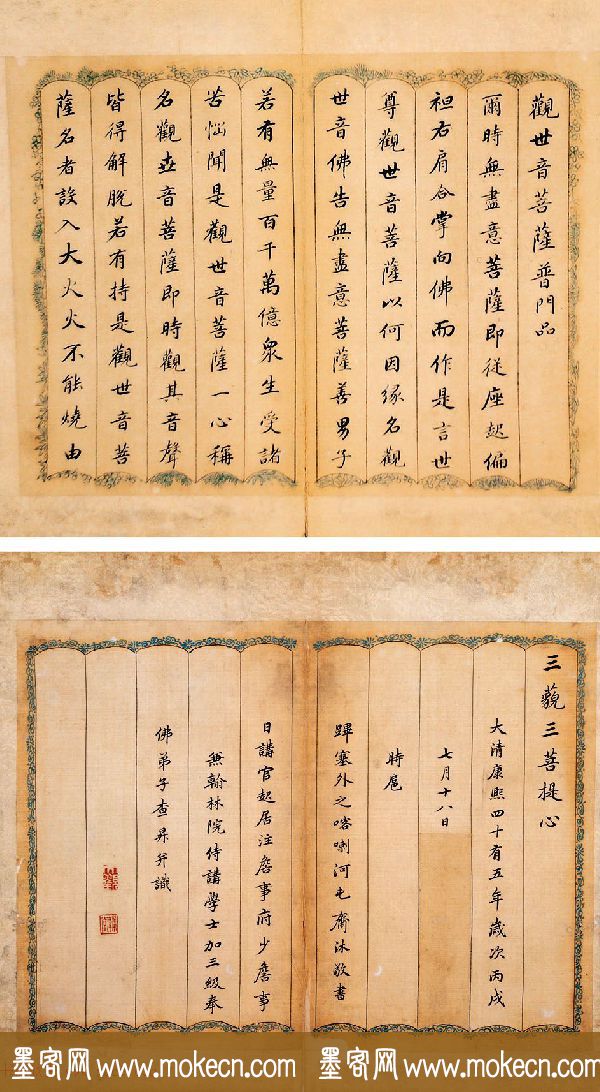 觀世音菩薩普門品
爾時無盡意菩薩即從座起偏
袒右肩合掌向佛而作是言世
尊觀世音菩薩以何因緣名觀
世音佛告無盡意菩薩善男子
若有無量百千萬億眾生受諸
苦惱聞是觀世音菩薩一心稱
名觀世音菩薩即時觀其音聲
皆得解脫若有持是觀世音菩
薩名者設入大火火不能燒由
三藐三菩提心
大清康熙四十有五年歲次丙戌
七月十八日
時扈
蹕塞外之喀喇河屯齋沐敬書
日講官起居注詹事府少詹事
兼翰林院侍講學士加三級奉
佛弟子查昇并識
墨客网 www.mokecn.com 墨客网 www.mokecn.com